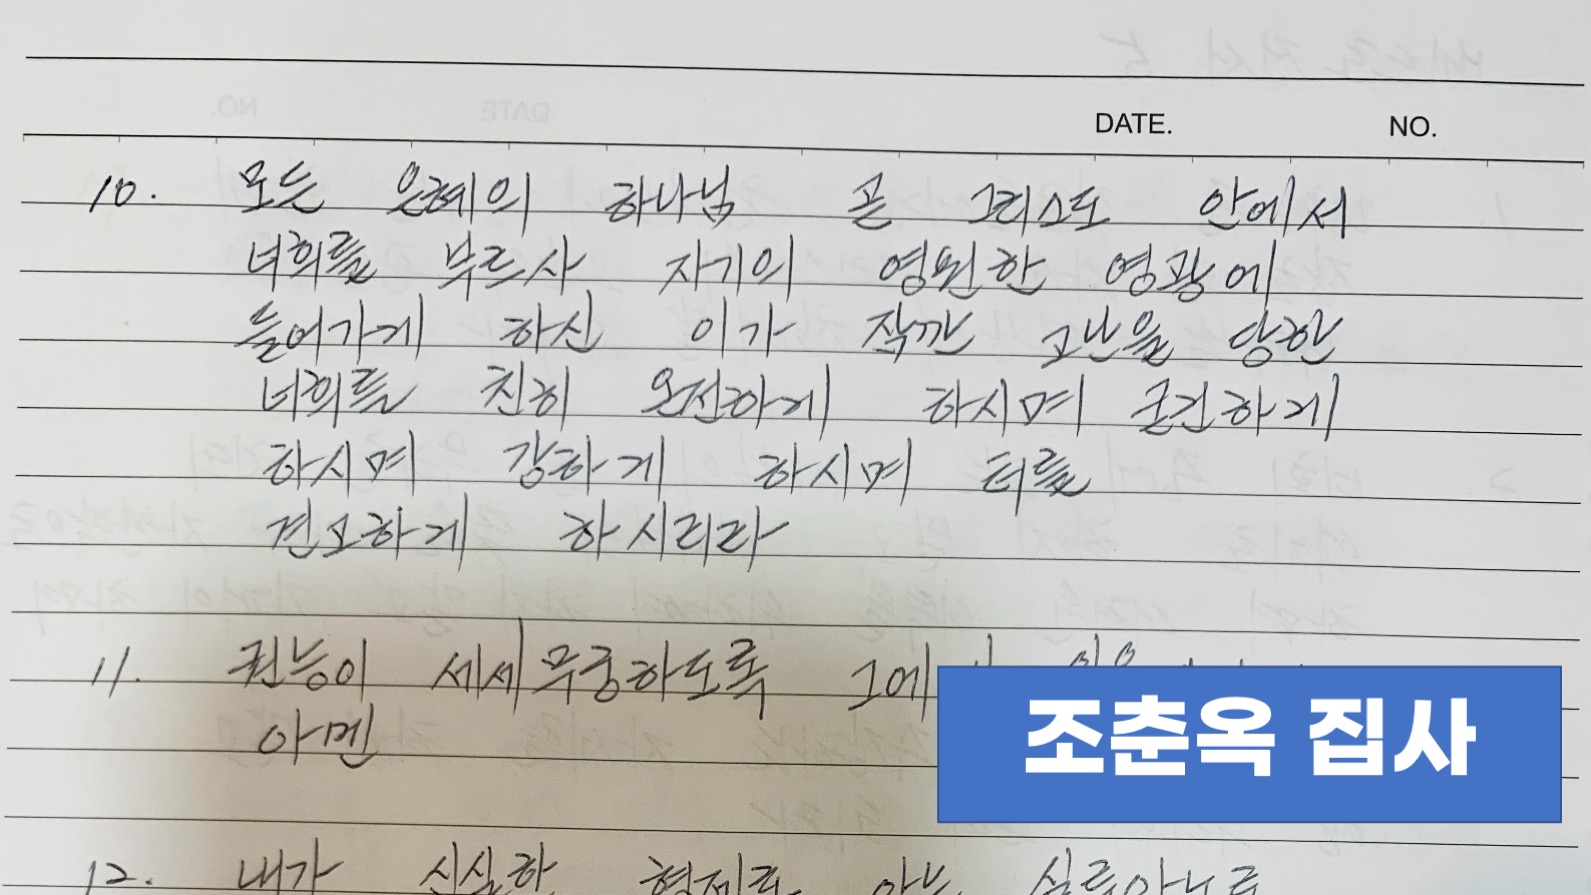 DATE. NO.
10. 모든 은혜의 하나님 곧 그리스도 안에서
너희를 부르사 자기의 영원한 영광에
들어가게 하신 이가 잠깐 고난을 당한
너희를 친히 온전하게 하시며 굳건하게
하시며 강하게 하시며 터를
견고하게 하시리라
11. 권능이 세세무궁하도록 그에게
아멘
조춘옥 집사
12. 내가 신실한 형제로 아는 실루아노로